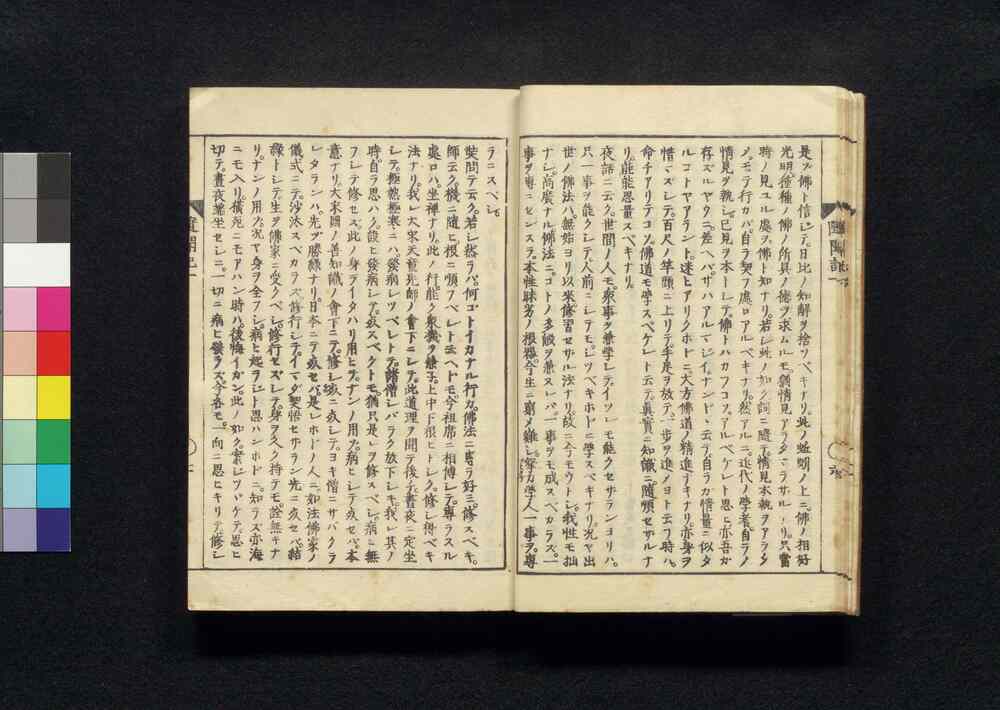 是ヲ佛ト信ジテ日比ノ知解ヲ捨ツベキナリ。此ノ蚯蚓ノ上ニ。佛ノ相好
光明。種種ノ佛ノ所具ノ德ヲ求ムルモ。猶情見アラタマラザルナリ。只當
時ノ見ユル處ヲ佛ト知ナリ。若シ此ノ如ク詞ニ隨テ。情見本執ヲアラタ
メモテ行カバ。自ラ契フ處ロアルベキナリ。然アルニ。近代ノ學者。自ラノ
情見ヲ執シ。己見ヲ本トシテ。佛トハカフコソアルベケレト思ヒ。亦吾カ
存ズルヤウニ差ヘバ。サハアルマジイナンド云テ。自ラカ情量ニ似タ
ルコトヤアラント。迷ヒアリクホドニ。大方佛道ノ精進ナキナリ。亦身ヲ
惜マズシテ。百尺ノ竿頭ニ上リテ。手足ヲ放テ。一歩ヲ進メヨト云フ時ハ。
命チアリテコソ。佛道モ學スベケレト云テ。眞實ニ知識ニ隨順セザルナ
リ。能能思量スベキナリ。
夜話ニ云ク。世間ノ人モ。衆事ヲ兼學シテ。イヅレモ能クセザランヨリハ。
只一事ヲ能クシテ。人前ニシテモシツベキホドニ學スベキナリ。況ヤ出
世ノ佛法ハ。無始ヨリ以來修習セザル法ナリ。故ニ今モウトシ。我性モ拙
ナシ。高廣ナル佛法ニ。コトノ多般ヲ兼ヌレバ。一事ヲモ成スベカラズ。一
事ヲ專ニセンスラ。本性昧劣ノ根器。今生ニ窮メ難シ。努力學人一事ヲ專
ラニスベシ。
奘問テ云ク。若シ然ラバ。何コトイカナル行カ。佛法ニ專ラ好ミ修スベキ。
師云ク。機ニ隨ヒ根ニ順フベシト云ヘドモ。今祖席ニ相傳シテ。專ラスル
處ロハ。坐禪ナリ。此ノ行。能ク衆機ヲ兼子。上中下根ヒトシク。修シ得ベキ
法ナリ。我レ大宋天童先師ノ會下ニシテ。此道理ヲ聞テ後チ。晝夜ニ定坐
シテ。極熱極寒ニハ。發病シツベシトテ。諸僧シバラク放下シキ。我レ其ノ
時自ラ思ハク。設ヒ發病シテ。死スベクトモ。猶只是レヲ修スベシ。病ヒ無
フシテ修セズ。此ノ身ライタハリ用ヒテ。ナンノ用ゾ。病ヒシテ死セバ。本
意ナリ。大宋國ノ善知識ノ會下ニテ。修シ死ニ死シテ。ヨキ僧ニサバクラ
レタランハ。先ヅ勝緣ナリ。日本ニテ死セバ。是レホドノ人ニ。如法佛家ノ
儀式ニテ。沙汰スベカラズ。修行シテ。イマダ契悟セザラン先ニ死セバ。結
緣トシテ。生ヲ佛家ニ受クベシ。修行セズシテ。身ヲ久ク持テモ。詮無キナ
リ。ナンノ用ゾ。況ヤ身ヲ全フシ。病ヒ起ラジト思ハンホドニ。知ラズ亦海
ニモ入リ。橫死ニモアハン時ハ。後悔イカン。此ノ如ク。案シツヾケテ。思ヒ
切テ。晝夜端坐セシニ。一切ニ病ヒ發ラズ。今各モ。一向ニ思ヒキリテ。修シ